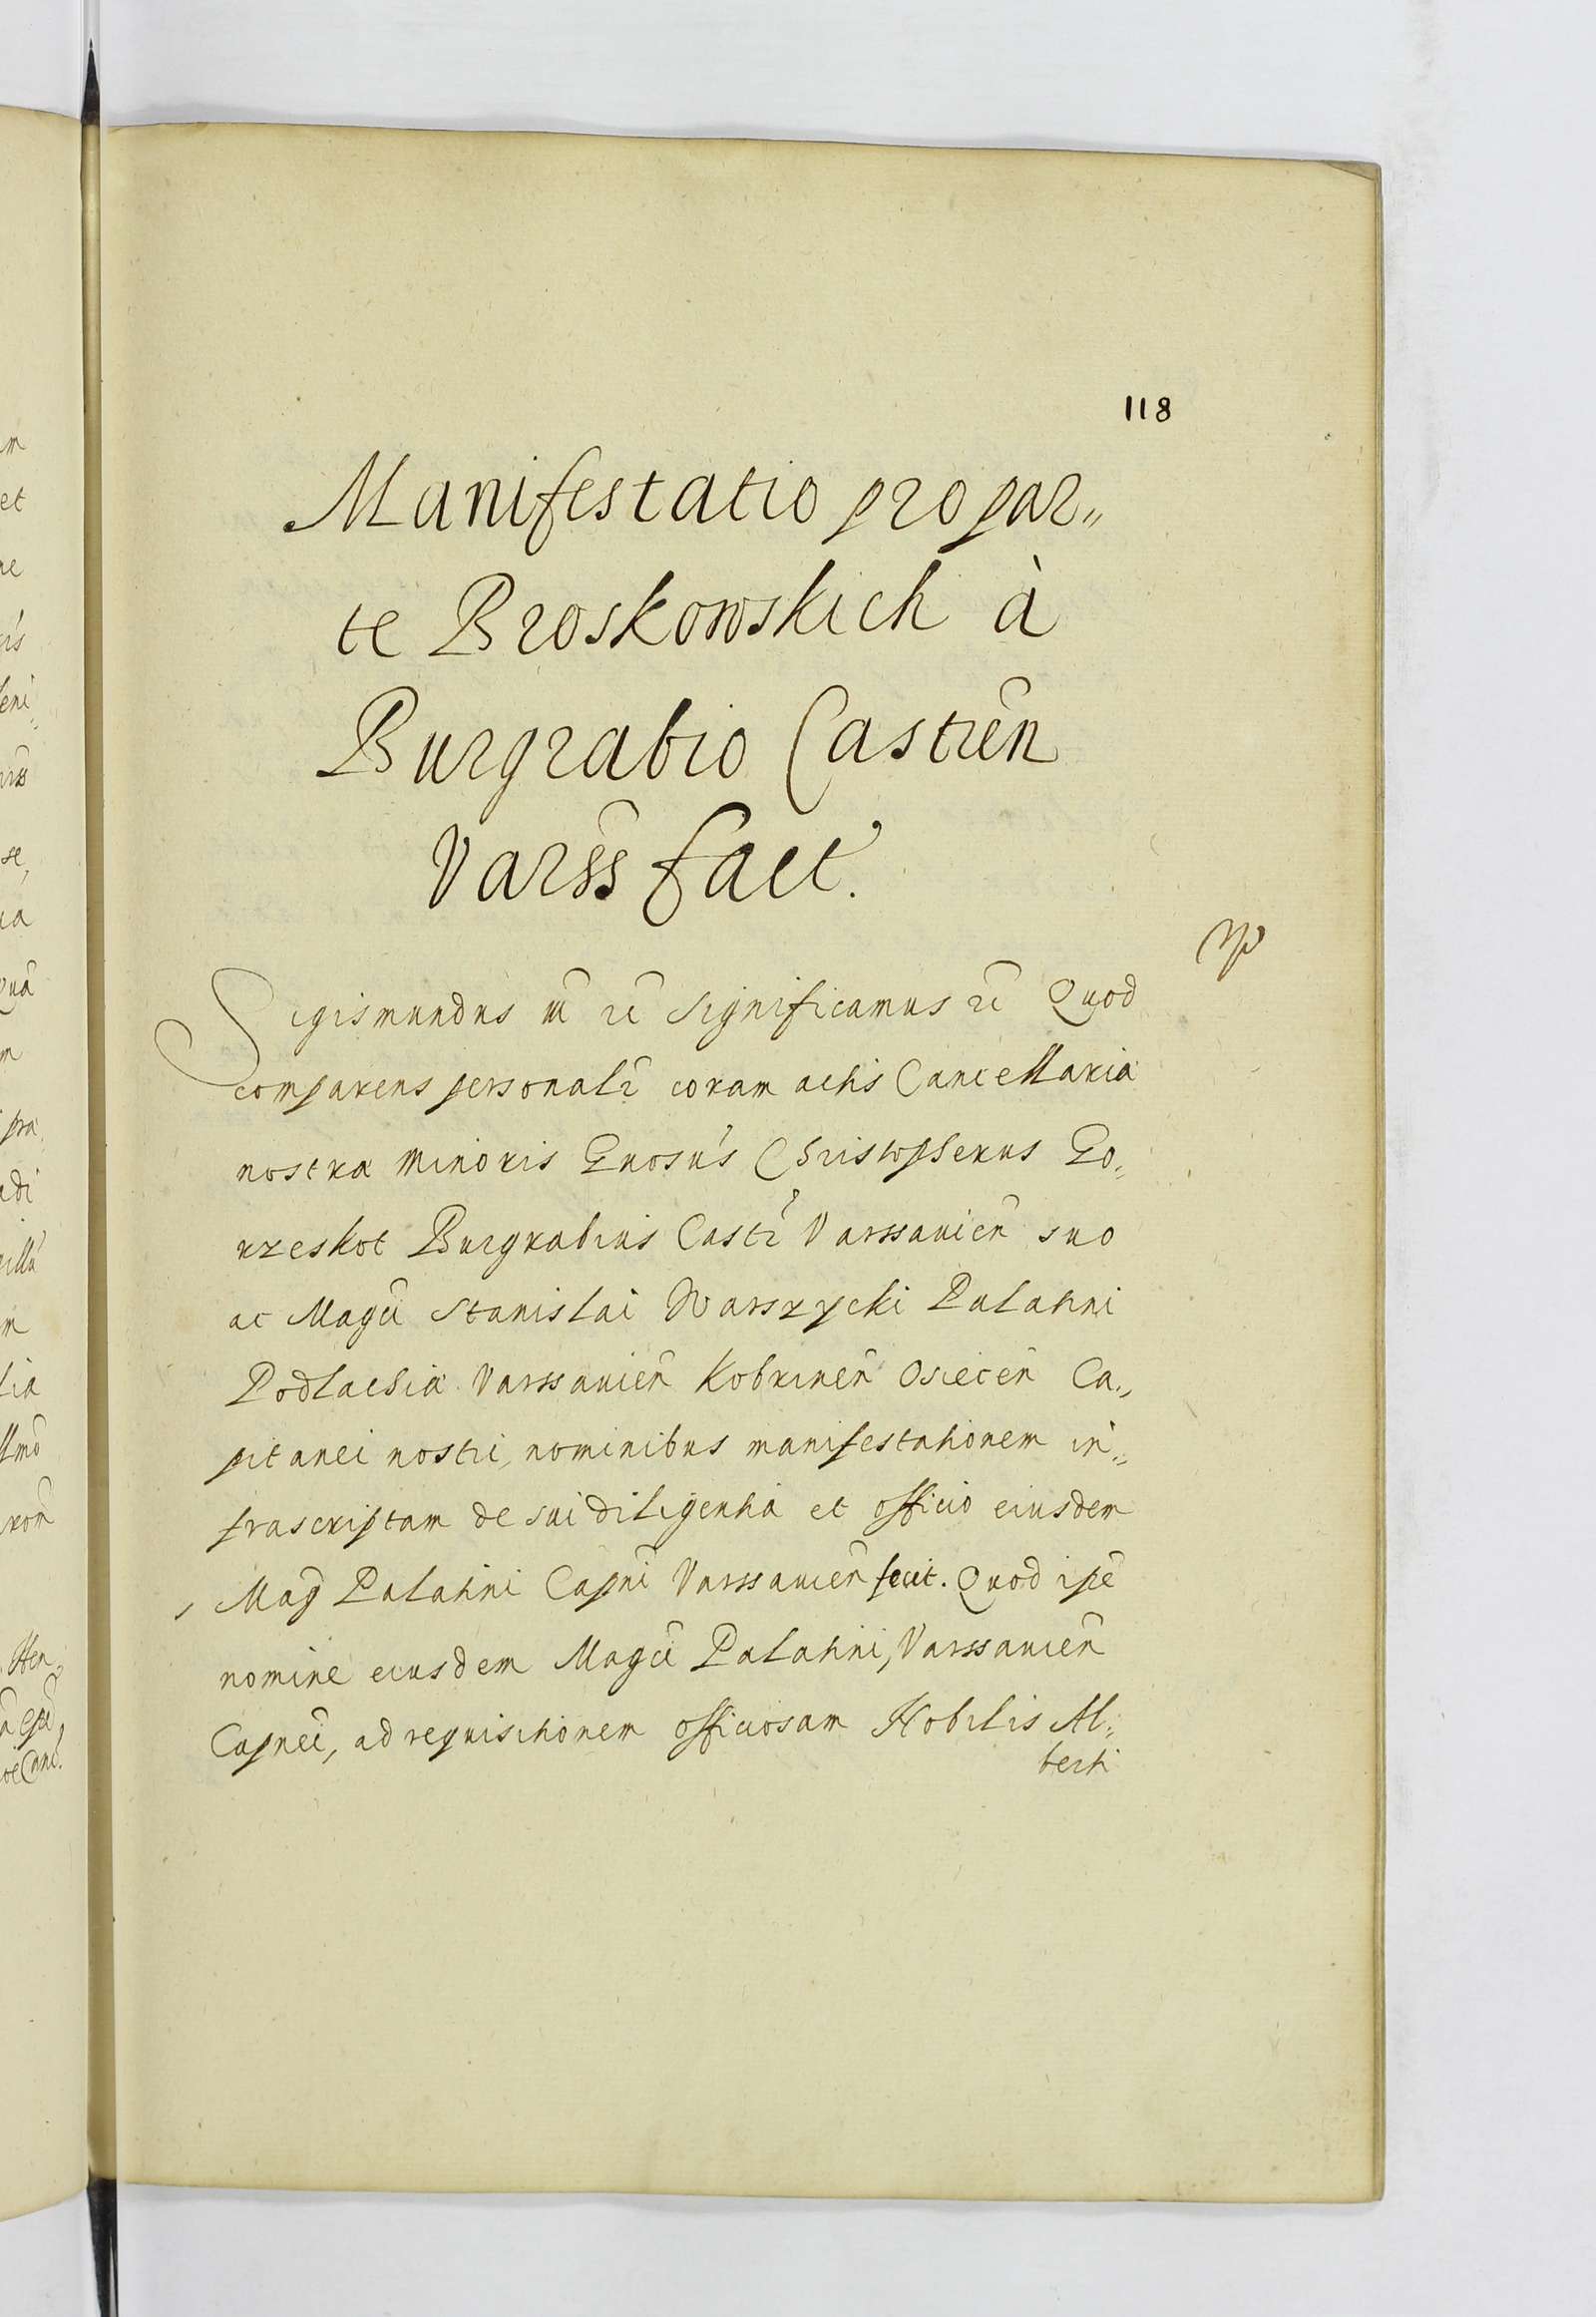 118
Manifestatio pro par„
te Broskowskich à
Burgrabio Castren̄
Varss̄ fact.
Sigismundus III rc̄ Significamus rc̄ Quod
comparens personalr̄ coram actis Cancellaria
nostra minoris Gnosus Christopherus Go„
rzeskot Burgrabius Castr̄ Varssauien̄ suo
ac Magci Stanislai Warszycki Palatini
Podlachia Varssauien̄ Kobrinen̄ Osiecen̄ Ca„
pitanei nostri, nominibus manifestationem in„
frascriptam de sui diligentia et officio eiusdem
Mag Palatini Capn̄i Varssauien̄ fecit. Quod ipē
nomine eiusdem Magci Palatini, Varssauien̄
Capnei, ad requisitionem officiosam Nobilis Al„
berti